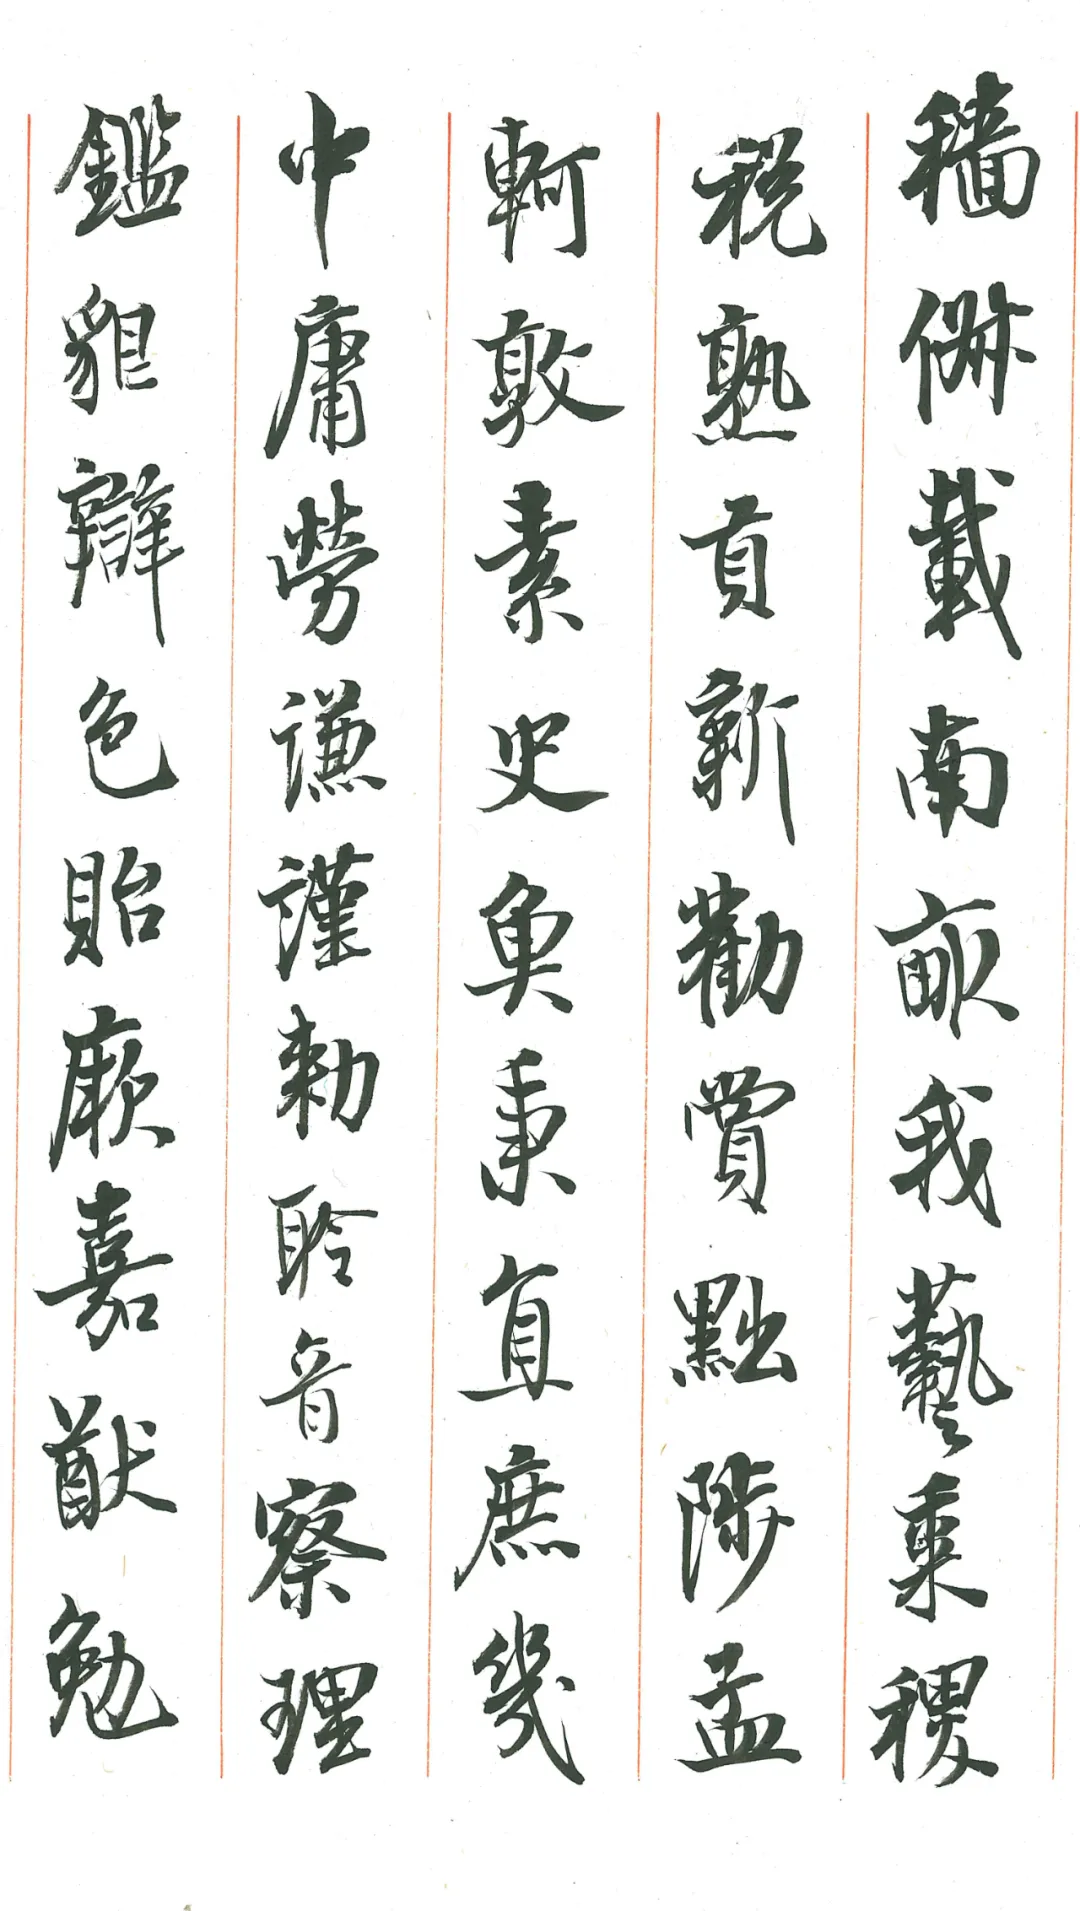 穡俶載南畝我藝黍稷
税熟貢新勸賞黜陟孟
軻敦素史魚秉直庶幾
中庸勞謙謹勅聆音察理
鑑貌辯色貽厥嘉猷勉